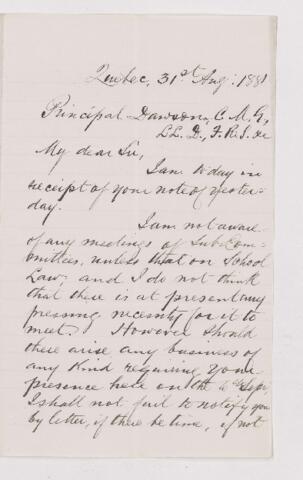 Quebec, 31st Aug: 1881
Principal Dawson, C. M. G,
LL. D., F. R. S. &c
My dear Sir,
I am to day in
receipt of your note of yester-
day.
I am not aware
of any meetings of Sub Com-
mittees, unless that on School
Law, and I do not think
that there is at present any
pressing necessity for it to
meet. However should
there arise any business of
any kind requiring your
presence here on the 6th Sept,
I shall not fail to notify you
by letter, if there be time, if not